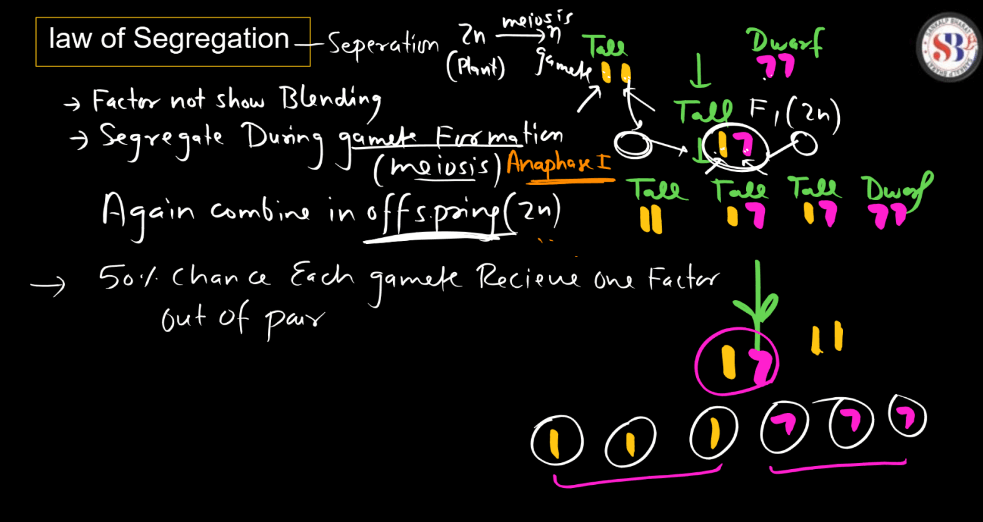 law of Segregation – Seperation 2n meiosis→ n
(Plant) gamete
→ Factor not show Blending
→ Segregate During gamete Formation
(meiosis) Anaphase I
Again combine in offspring (2n)
→ 50% chance Each gamete Recieve one Factor
out of pair
Tall Dwarf
Tall F1 (2n)
Tall Tall Tall Dwarf
SB
SANKALP BHARAT